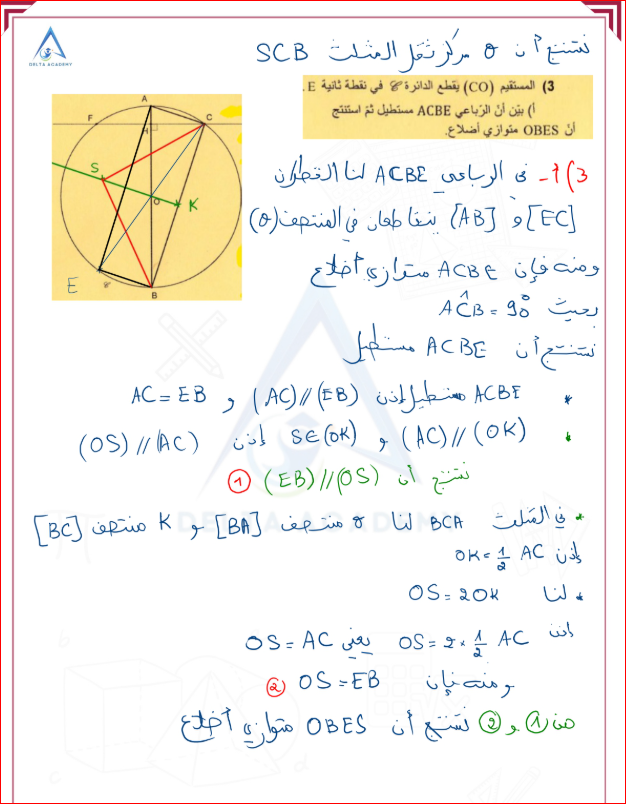 DELTA ACADEMY
نستنتج أن O مركز ثقل المثلث SCB
3) المستقيم (CO) يقطع الدائرة 𝒞 في نقطة ثانية E.
أ) بيّن أنّ الرباعي ACBE مستطيل ثمّ استنتج
أنّ OBES متوازي أضلاع.
A
F
C
H
S
O
K
E
𝒞
B
3) أ- في الرباعي ACBE لنا القطران
[EC] و [AB] يتقاطعان في المنتصف (O)
ومنه فإن ACBE متوازي أضلاع
بحيث AĈB = 90°
نستنتج أن ACBE مستطيل
* ACBE مستطيل إذن (AC)//(EB) و AC = EB
* (AC)//(OK) و S∈(OK) إذن (OS)//(AC)
نستنتج أن (EB)//(OS) ①
* في المثلث BCA لنا O منتصف [BA] و K منتصف [BC]
إذن OK = 1/2 AC
* لنا OS = 2OK
إذن OS = 2 × 1/2 AC يعني OS = AC
ومنه فإن OS = EB ②
من ① و ② نستنتج أن OBES متوازي أضلاع
DELTA ACADEMY